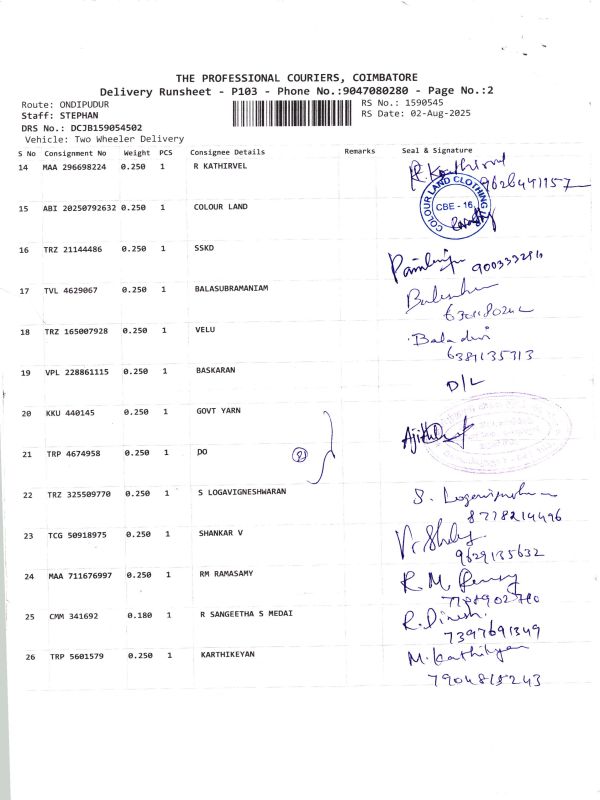 THE PROFESSIONAL COURIERS, COIMBATORE
Delivery Runsheet - P103 - Phone No.:9047080280 - Page No.:2
Route: ONDIPUDUR RS No.: 1590545
Staff: STEPHAN RS Date: 02-Aug-2025
DRS No.: DCJB159054502
Vehicle: Two Wheeler Delivery
S No Consignment No Weight PCS Consignee Details Remarks Seal & Signature
14 MAA 296698224 0.250 1 R KATHIRVEL R. Kathirvel
9626491157
15 ABI 20250792632 0.250 1 COLOUR LAND COLOUR LAND CLOTHING CBE - 16
16 TRZ 21144486 0.250 1 SSKD
17 TVL 4629067 0.250 1 BALASUBRAMANIAM
18 TRZ 165007928 0.250 1 VELU Baladevi
6381135313
19 VPL 228861115 0.250 1 BASKARAN D/L
20 KKU 440145 0.250 1 GOVT YARN
21 TRP 4674958 0.250 1 DO (2)
22 TRZ 325509770 0.250 1 S LOGAVIGNESHWARAN S.
8778214496
23 TCG 50918975 0.250 1 SHANKAR V
9629135632
24 MAA 711676997 0.250 1 RM RAMASAMY R.M.
25 CMM 341692 0.180 1 R SANGEETHA S MEDAI R. Dinesh.
7397691349
26 TRP 5601579 0.250 1 KARTHIKEYAN M. Karthikeyan
7904815243